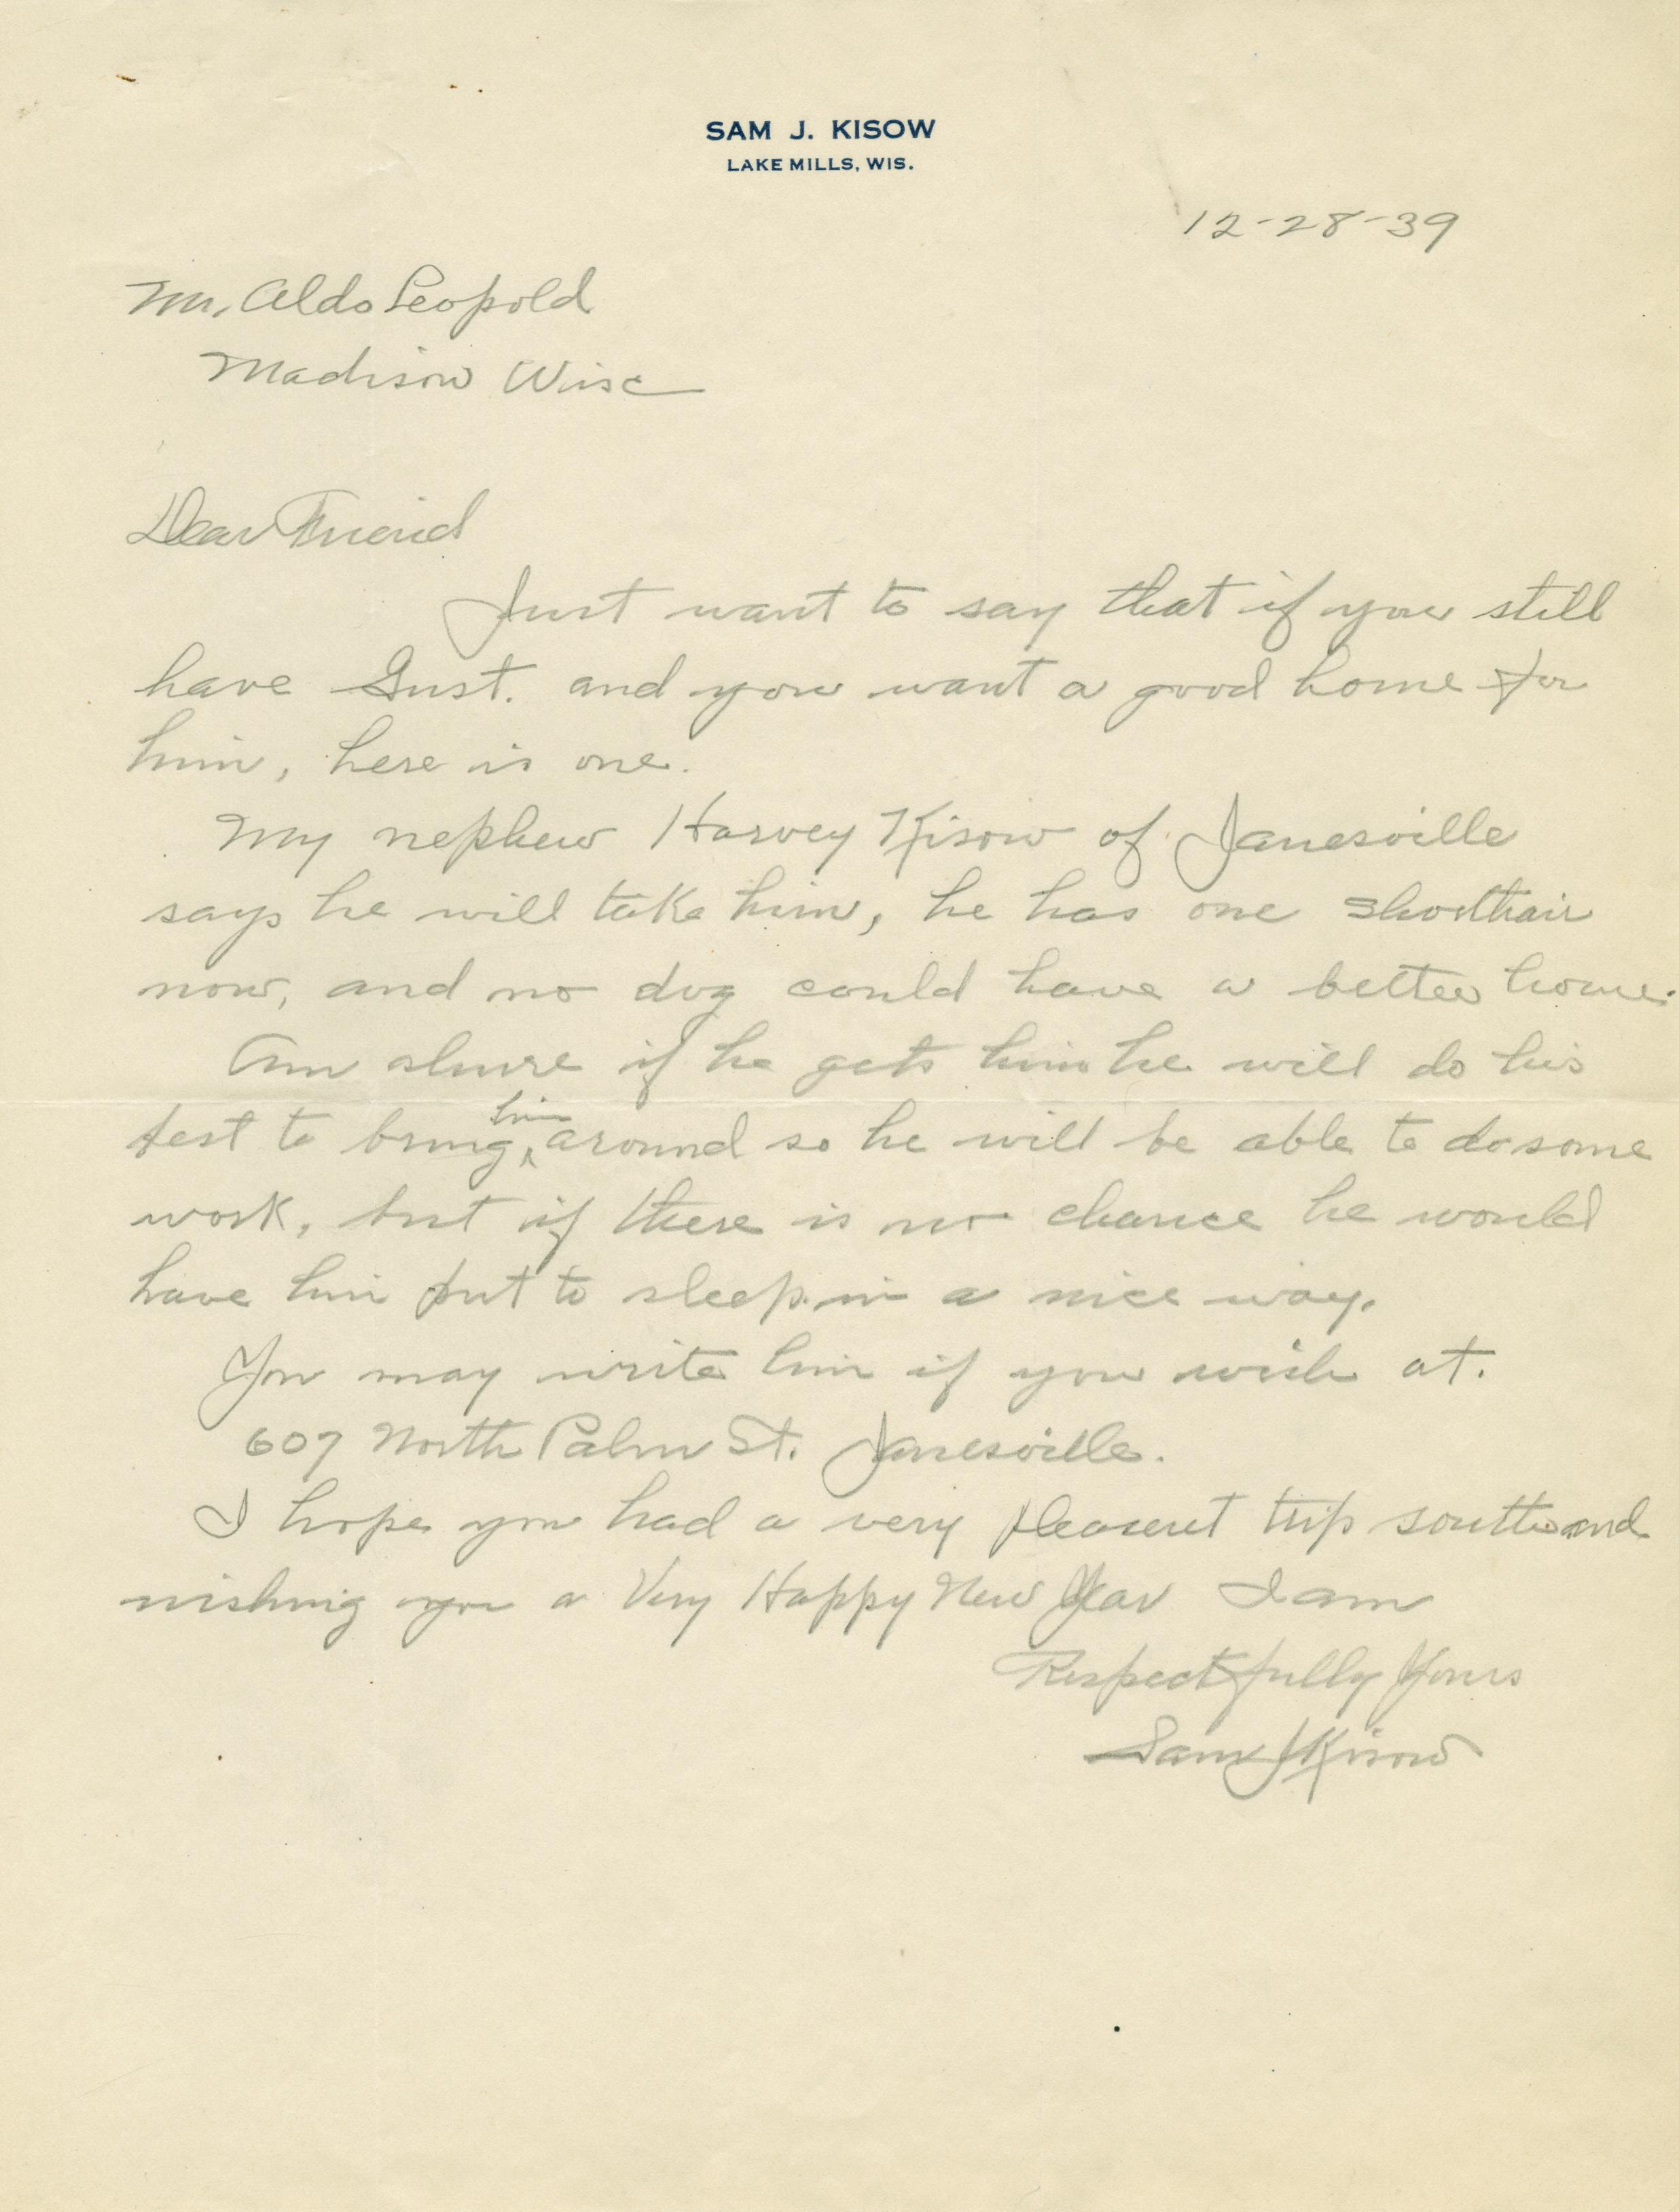 SAM J. KISOW
LAKE MILLS, WIS.
12-28-39
Mr. Aldo Leopold
Madison Wisc
Dear Friend
Just want to say that if you still
have Gust. and you want a good home for
him, here is one.
My nephew Harvey Kisow of Janesville
says he will take him, he has one Shorthair
now, and no dog could have a better home.
Am shure if he gets him he will do his
best to bring him around so he will be able to do some
work, but if there is no chance he would
have him put to sleep in a nice way.
You may write him if you wish at.
607 North Palm St. Janesville.
I hope you had a very pleasent trip south and
wishing you a Very Happy New Year I am
Respectfully Yours
Sam J Kisow